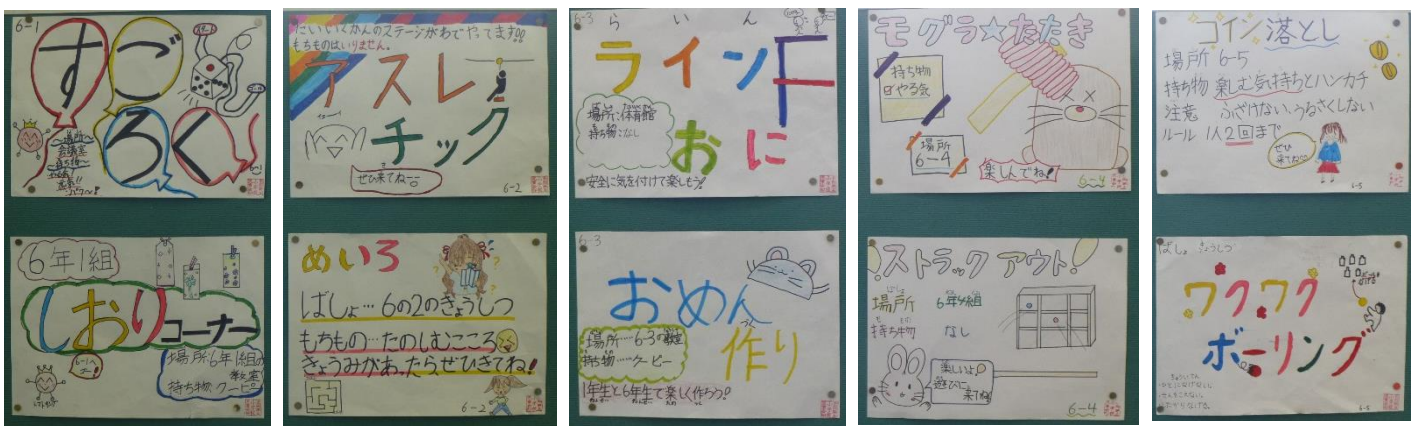 6-1
すご
ろく
〜場所〜
会議室
〜持ち物〜
6年1組
しおり
コーナー
場所:6年1組の
教室
持ち物:クーピー
たいいくかんのステージがわでやってます!!
もちものはいりません。
アスレ
チック
ぜひ来てねー
6-2
めいろ
ばしょ…6の2のきょうしつ
もちもの…たのしむこころ
きょうみがあったらぜひきてね!
6-2
6-3
らいん
ライン
おに
場所:体育館
持ち物:なし
安全に気を付けて楽しもう!
6-3
おめん
作り
場所…6-3の教室
持ち物…クーピー
1年生と6年生で楽しく作ろう!
モグラ☆たたき
持ち物
やる気
場所
6-4
楽しんでね!
6-4
ストラックアウト!
場所 6年4組
持ち物 なし
楽しいよ
遊びに
来てね
6-4
コイン落とし
場所 6-5
持ち物 楽しむ気持ちとハンカチ
注意 ふざけない、うるさくしない
ルール 1人2回まで
ぜひ
来てね
6-5
ばしょ きょうしつ
ワクワク
ボーリング
6-5